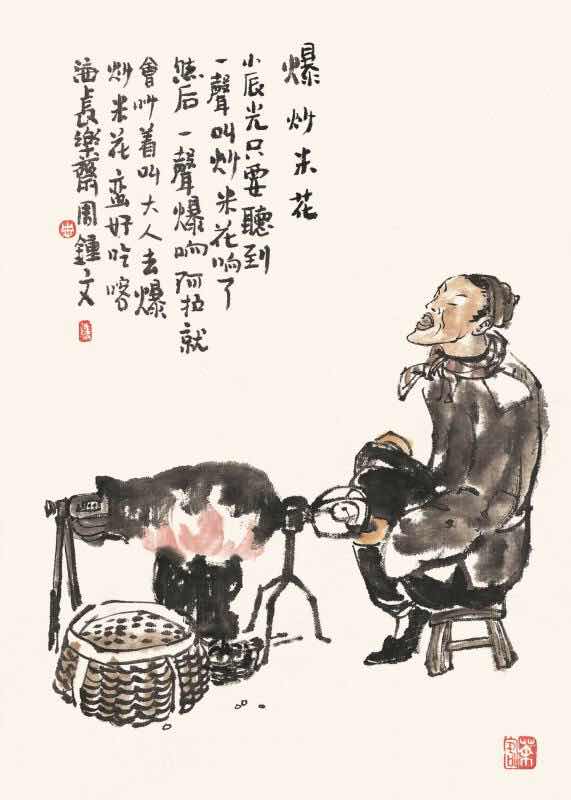 爆炒米花
小辰光只要聽到
一聲叫炒米花响了
然后一聲爆响阿拉就
會吵着叫大人去爆
炒米花蛮好吃喀
長樂齋周鍾文